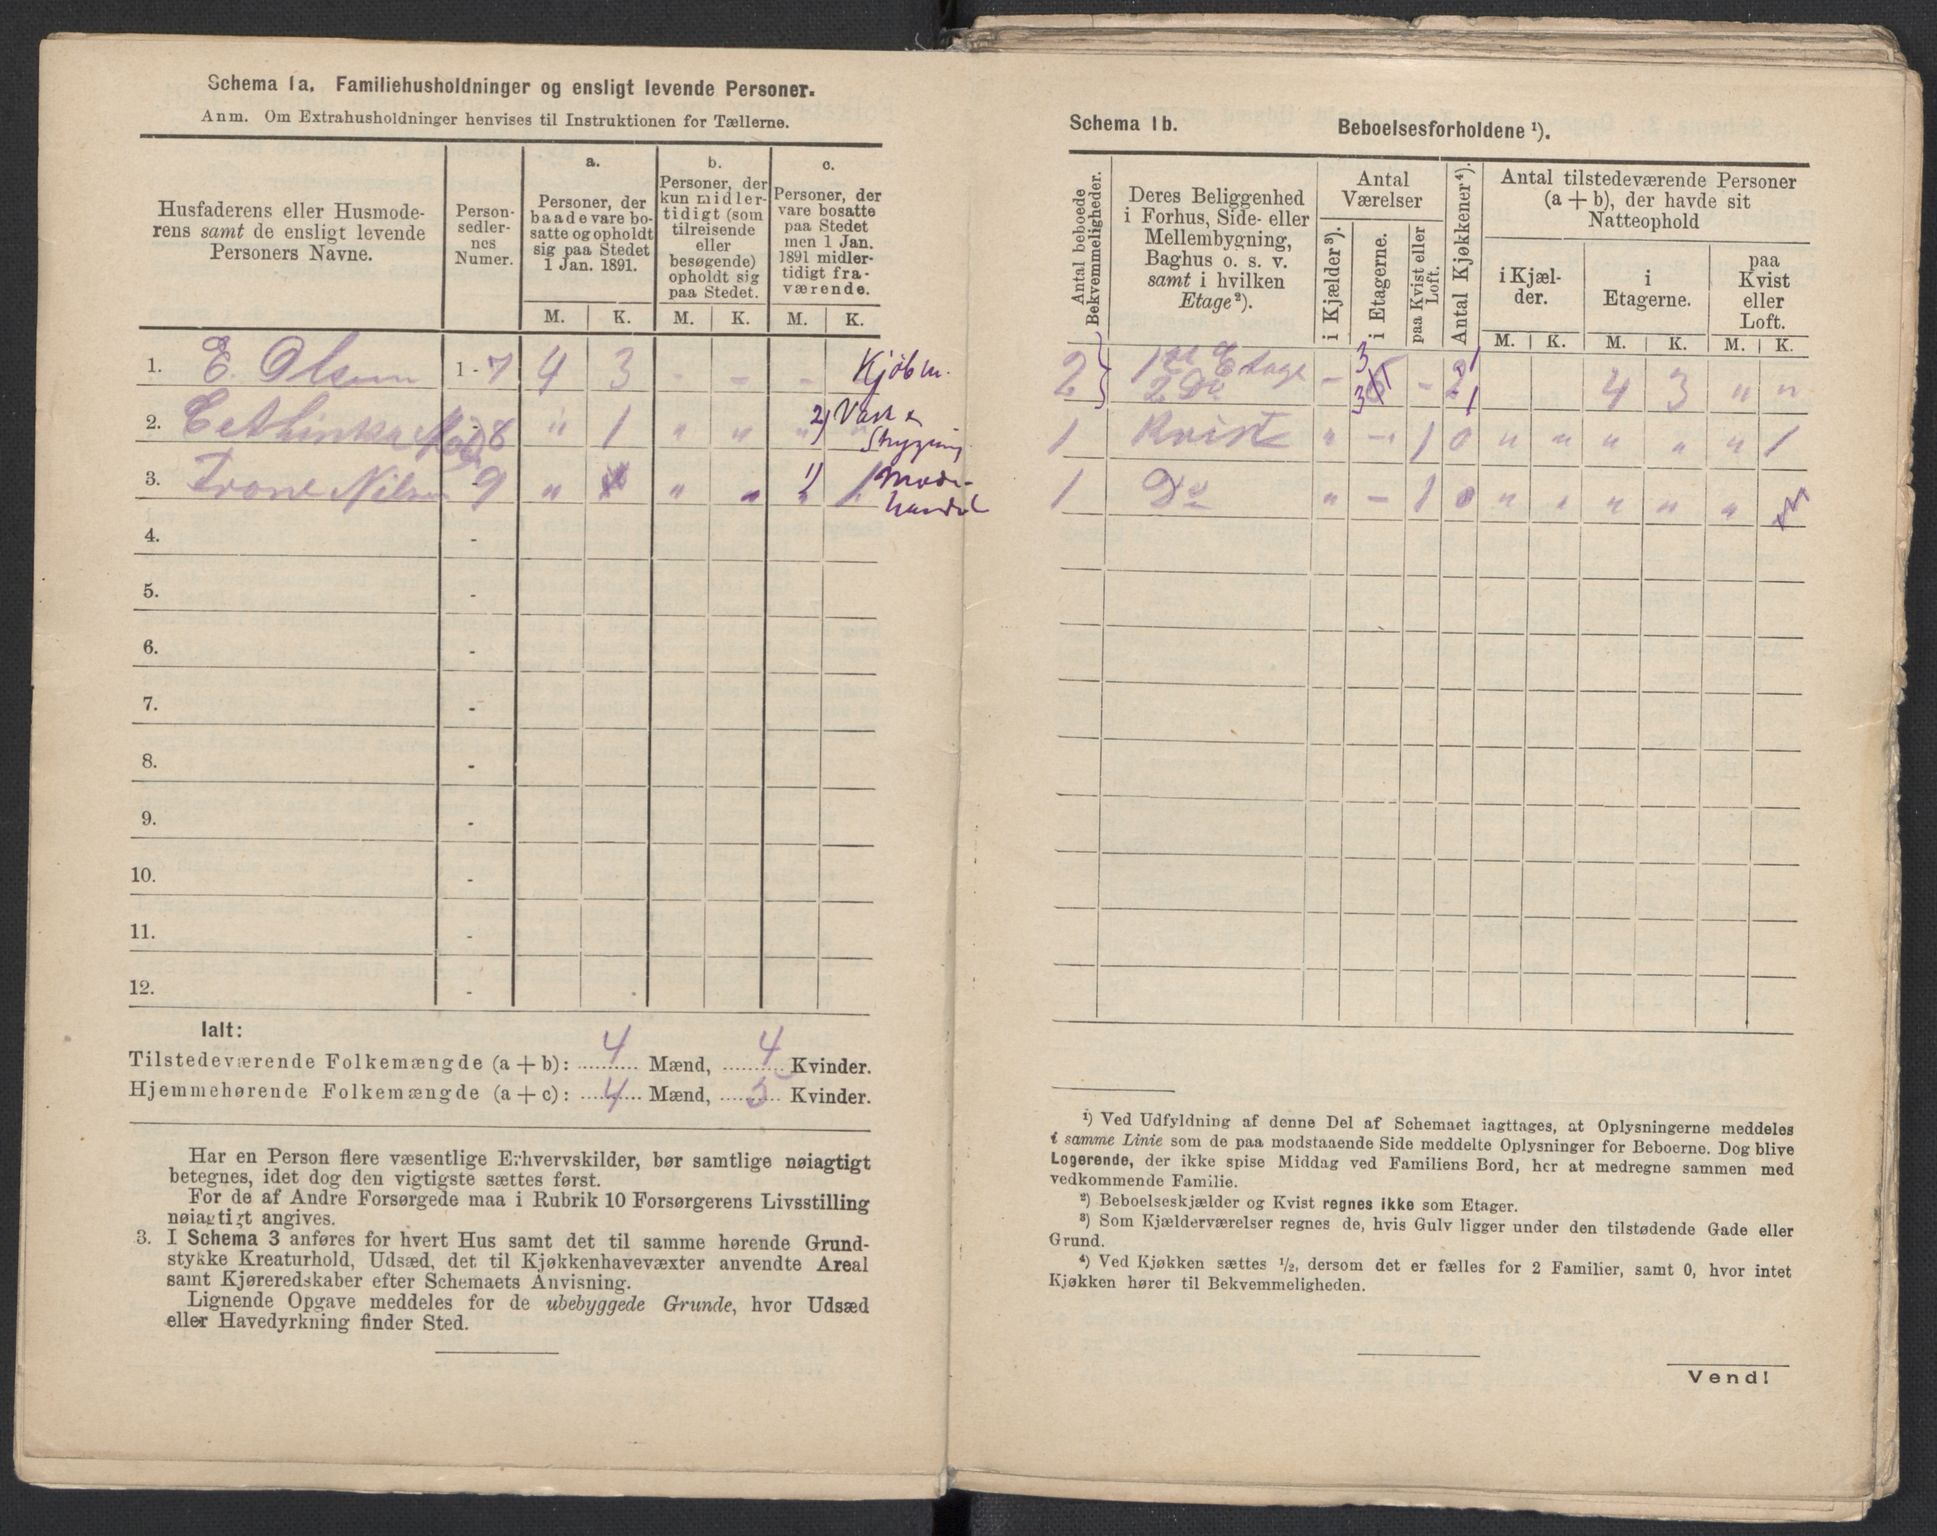 Schema 1a. Familiehusholdninger og ensligt levende Personer.
Anm. Om Extrahusholdninger henvises til Instruktionen for Tællerne.
Husfaderens eller Husmode-
rens samt de ensligt levende
Personers Navne.
Person-
sedler-
nes
Numer.
a.
Personer, der
baade vare bo-
satte og opholdt
sig paa Stedet
1 Jan. 1891.
b.
Personer, der
kun midler-
tidigt (som
tilreisende
eller
besøgende)
opholdt sig
paa Stedet.
c.
Personer, der
vare bosatte
paa Stedet
men 1 Jan.
1891 midler-
tidigt fra-
værende.
M. K. M. K. M. K.
1. E. Olsen 1 - 7 4 3 - - - Kjøbm.
2. - 8 " 1 " " " 2) Vask &
Strygning
3. Nilsen - 9 " " " " 1) 1 Mode-
handel
4. -
5. -
6. -
7. -
8. -
9. -
10. -
11. -
12. -
Ialt:
Tilstedeværende Folkemængde (a + b): 4 Mænd, 4 Kvinder.
Hjemmehørende Folkemængde (a + c): 4 Mænd, 5 Kvinder.
Har en Person flere væsentlige Erhvervskilder, bør samtlige nøiagtigt
betegnes, idet dog den vigtigste sættes først.
For de af Andre Forsørgede maa i Rubrik 10 Forsørgerens Livsstilling
nøiagtigt angives.
3. I Schema 3 anføres for hvert Hus samt det til samme hørende Grund-
stykke Kreaturhold, Udsæd, det til Kjøkkenhavevæxter anvendte Areal
samt Kjøreredskaber efter Schemaets Anvisning.
Lignende Opgave meddeles for de ubebyggede Grunde, hvor Udsæd
eller Havedyrkning finder Sted.
Schema 1b. Beboelsesforholdene ¹).
Antal beboede
Bekvemmeligheder.
Deres Beliggenhed
i Forhus, Side- eller
Mellembygning,
Baghus o. s. v.
samt i hvilken
Etage²).
Antal
Værelser
i Kjælder³).
i Etagerne.
paa Kvist eller
Loft.
Antal Kjøkkener⁴).
Antal tilstedeværende Personer
(a + b), der havde sit
Natteophold
i Kjæl-
der.
i
Etagerne.
paa
Kvist
eller
Loft.
M. K. M. K. M. K.
2 1ste Etage 3 1
2 Do - 3 - 2 1 4 3 " "
1 Kvist " - 1 0 " " " " " 1
1 Do " - 1 0 " " " " "
¹) Ved Udfyldning af denne Del af Schemaet iagttages, at Oplysningerne meddeles
i samme Linie som de paa modstaaende Side meddelte Oplysninger for Beboerne. Dog blive
Logerende, der ikke spise Middag ved Familiens Bord, her at medregne sammen med
vedkommende Familie.
²) Beboelseskjælder og Kvist regnes ikke som Etager.
³) Som Kjælderværelser regnes de, hvis Gulv ligger under den tilstødende Gade eller
Grund.
⁴) Ved Kjøkken sættes ½, dersom det er fælles for 2 Familier, samt 0, hvor intet
Kjøkken hører til Bekvemmeligheden.
Vend!